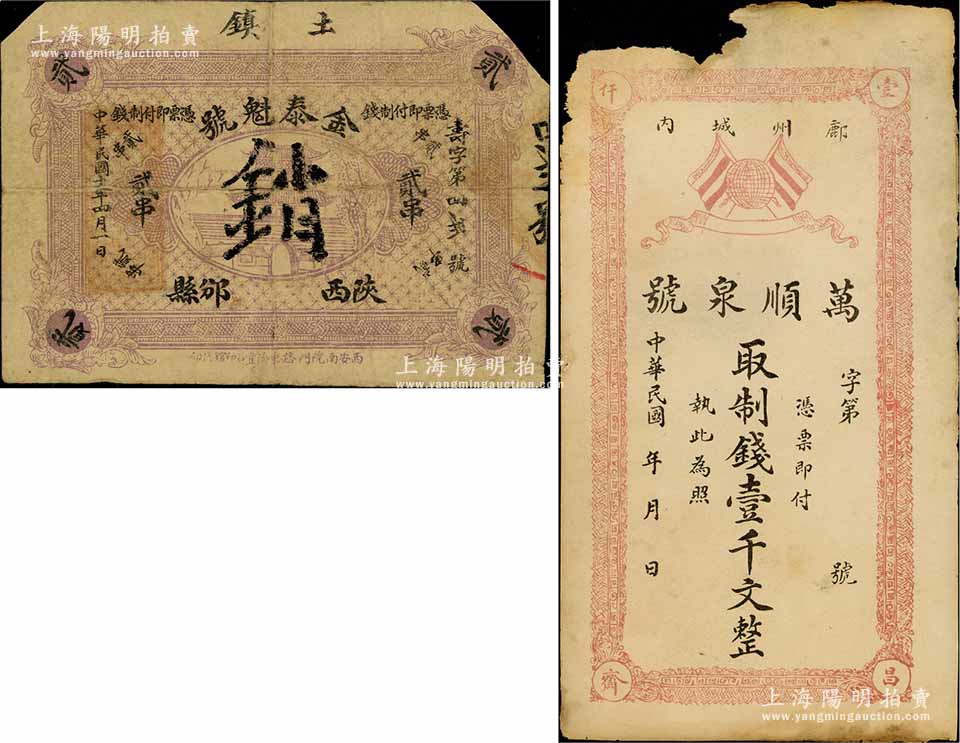 上海陽明拍賣
www.yangmingauction.com
土鎮
貳
貳
憑票即付制錢
金泰魁號
憑票即付制錢
壽字第
號
貳串
鈔
貳串
中華民國十一年四月一日
陝西
邠縣
貳
上海陽明拍賣
www.yangmingauction.com
壹
仟
鄜州城内
萬順泉號
字第
號
憑票即付
取制錢壹千文整
執此為照
中華民國 年 月 日
昌
齊
上海陽明拍賣
www.yangmingauction.com